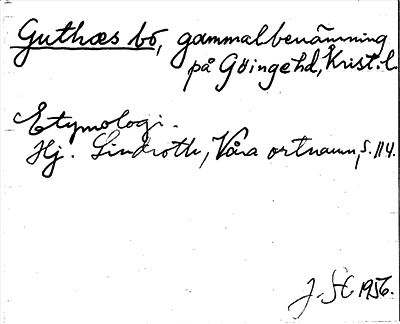 Guthæs bo, gammal benämning
på Göingehd, Krist. l.
Etymologi.
Hj. Lindroth, Våra ortnamn, s. 114.
J. 1956.